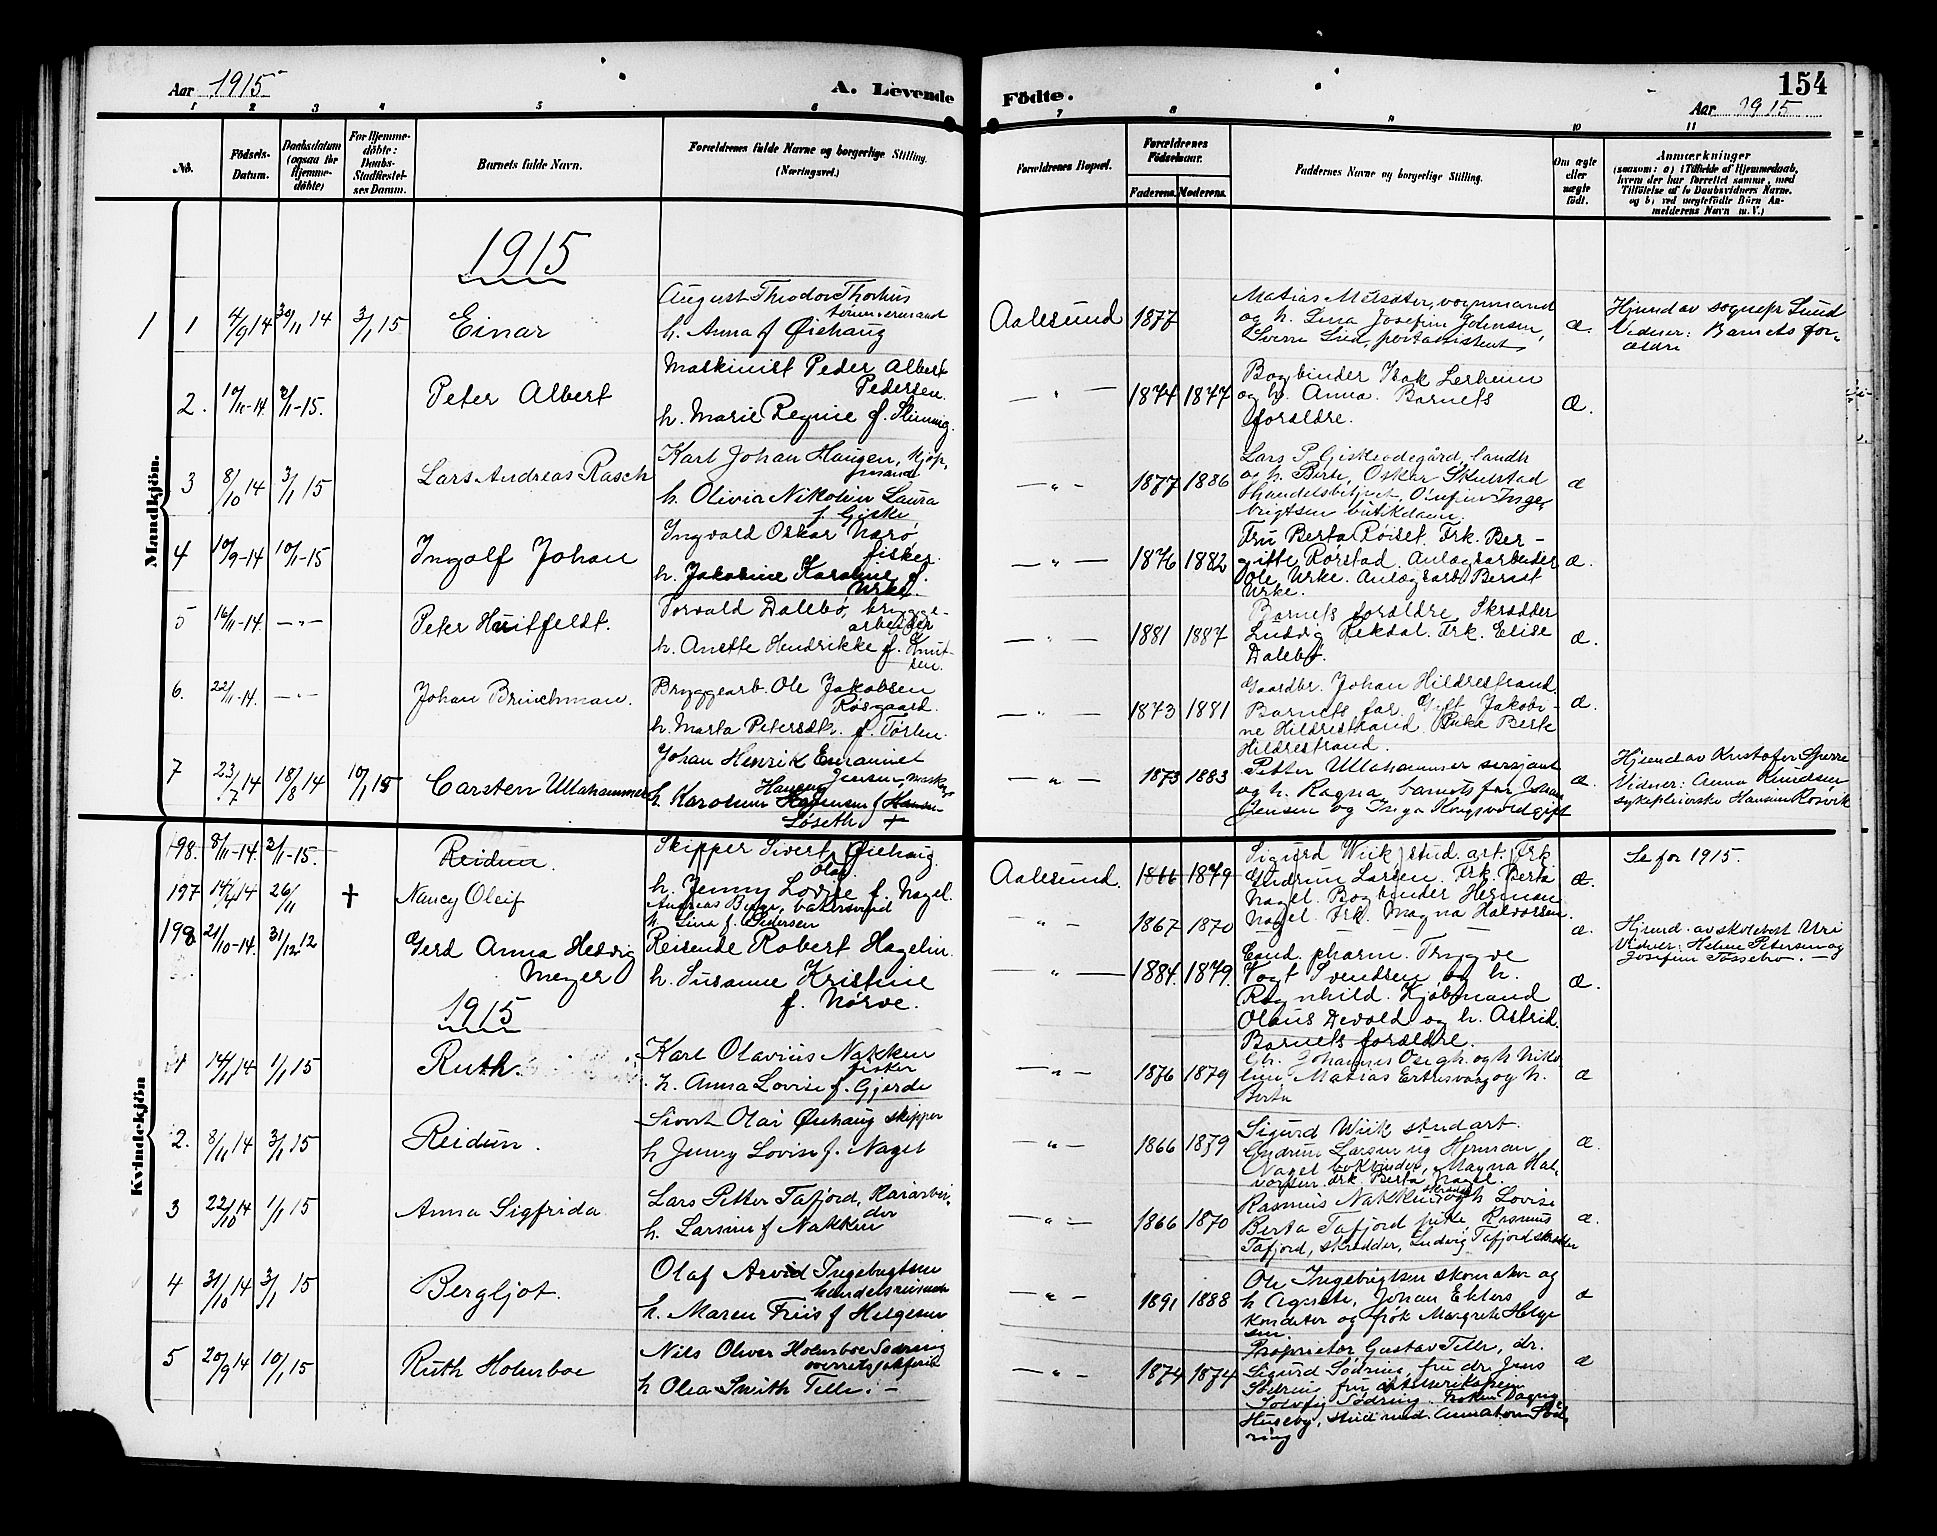 154
Aar 1915
A. Levende
Födte.
Aar 1915
1 2 3 4 5 6 7 8 9 10 11
No.
Födsels-Datum.
Daabsdatum (ogsaa for Hjemme-döbte)
For Hjemme-döbte: Daabs-Stadfæstel-ses Datum.
Barnets fulde Navn.
Forældrenes fulde Navne og borgerlige Stilling. (Næringsvei.)
Forældrenes Bopæl.
Forældrenes Födselsaar.
Faderens. Moderens.
Faddernes Navne og borgerlige Stilling.
Om ægte eller uægte födt.
Anmærkninger
(saasom: a) i Tilfælde af Hjemmedaab,
hvem der har forrettet samme, med
Tilföielse af to Daabsvidners Navne.
og b) ved uægtefödte Börn An-
melderens Navn m. V.)
Mandkjön.
1915
1 1 4/9 14 30/11 14 3/1 15 Einar
August Theodor Thorhus
tömmermand
h. Anna f Øiehaug
Aalesund 1877
Matias vognmand
og h. Lina Josefine Johnsen,
Sverre Lied, postassistent
æ.
Hjmd av sognepr Lund
Vidner: Barnets for-
ældre
2. 10/11-14. 2/1-15. Peter Albert
Maskinist Peder Albert
Pedersen
h. Marie Regine f.
— " — 1874 1847
Bogbinder Isak Lerheim
og h. Anna. Barnets
forældre.
Æ.
3 8/10 14 3/1 15 Lars Andreas Rasch
Karl Johan Haugen, kjöp-
mand
h. Olivia Nikolin Laura
f. Giske
— " — 1877 1886
Lars P. Giskeødegård, landh
og h. Berte, Oskar Skulstad
handelsbetjent, Inge-
brigtsen butikdame.
æ
4 10/9-14 10/1-15 Ingolf Johan
Ingvald Oskar Narö
fisker.
h. Jakobine Karoline f.
Urke.
— " — 1876 1882
Fru Berta Röiset. Frk. Ber-
gitte Rörstad. Anlægsarbeider
Ole Urke. Anlægsarb. Bernt
Urke.
æ.
5 16/11-14. — " — Peter Huitfeldt.
Torvald Dalebö, brygge-
arbeider
h. Anette Hendrikke f. Knut-
sen.
— " — 1881 1887
Barnets forældre, Skrædder
Ludvig Rekdal. Frk. Elise
Dalebö.
æ.
6. 22/11-14. — " — Johan Brinchman.
Bryggearb. Ole Jakobsen
Rösgaard.
h. Marta Petersdt. f. Törlen.
— " — 1843 1881
Gaardbr. Johan Hildrestrand.
Barnets far. Gift Jakobi-
ne Hildrestrand. Pike Berte
Hildrestrand.
æ.
7 23/7 14 18/8 14 10/1 15 Carsten Ullahammer
Johan Henrik Emanuel
Jensen, mask
Hansine
h. Karoline f
Löseth +
— " — 1873 1883
Petter Ullahammer sersjant
og h. Ragna barnets far Johan
Jensen og Inga Kongsvold gift
æ.
Hjemd av Kristofer Sperre
Vidner: Anna Knudsen
sykepleierske Hansine Rösvik
Kvindekjön
198. 8/11-14. 2/1-15. Reidun.
Skipper Sivert Olai Øiehaug.
h. Jenny Lovise f. Nagel.
Aalesund. 1866 1879
Sigurd Wiik, stud. art. Frk
Gudrun Larsen. Frk. Berta
Nagel. Bogbinder Herman
Nagel. Frk. Magna Halvorsen.
æ.
Se for 1915.
197 14/4 14 26/11 † Nancy Oleif
Andreas bakersvend
h. Lina f. Pedersen
— " — 1867 1870 — — — æ.
Hjmd. av skolebest Uri
Vidner: Helene Petersen og
Josefine Tössebro. —
198 21/10-14. 31/12 12 Gerd Anna Hedvig
Meyer
Reisende Robert Hagelin
h. Susanne Kristine
f. Nörve.
— " — 1884 1879.
Cand. pharm. Trygve
Vogt Svendsen og h.
Ragnhild. Kjöbmand
Olaus Devold og h. Astrid.
Barnets forældre.
æ.
1915
1 14/11 14 1/1 15 Ruth.
Karl Olavius Nakken
fisker
h. Anna Lovise f. Gjerde
— " — 1876 1879
Gbr. Johannes og h Niko-
line Matias og h.
Berta
æ
2. 8/11 14 3/1 15 Reidun.
Sivert Olai Øiehaug skipper
h Jenny Lovise f. Nagel
— " — 1866 1879
Sigurd Wiik stud art.
Gudrun Larsen og Herman
Nagel bokbinder, Magna Hal-
vorsen frk Berta Nagel.
æ
3 22/10 14 1/1 15 Anna Sigfrida.
Lars Petter Tafjord, Havarbei-
der
h. Larsine f Nakken
— " — 1866 1870
Rasmus Nakken skrædder og h Lovise
Berta Tafjord pike, Rasmus
Tafjord, skrædder, Ludvig Tafjord skrædder
æ.
4 31/10 14 3/1 15 Bergljot.
Olaf Arvid Ingebrigtsen
handelsreisende
h. Maren Friis f Helgesen
— " — 1891 1888
Ole Ingebrigtsen skomaker og
h Agnete, Johan Ehlers
konditor og frök Margrete Helge
sen.
æ
5 20/9 14 10/1 15 Ruth Holmboe
Nils Oliver Holmboe Södring
overretssakförer
h Olea Smith Telle. —
— " — 1874 1874
Proprietær Gustav Telle, dr.
Sigurd Södring, fru dr. Jens
Södring, fru
Solveig Södring. Fröken Dagny
Huseby, stud med. Anathon Söd-
ring
æ